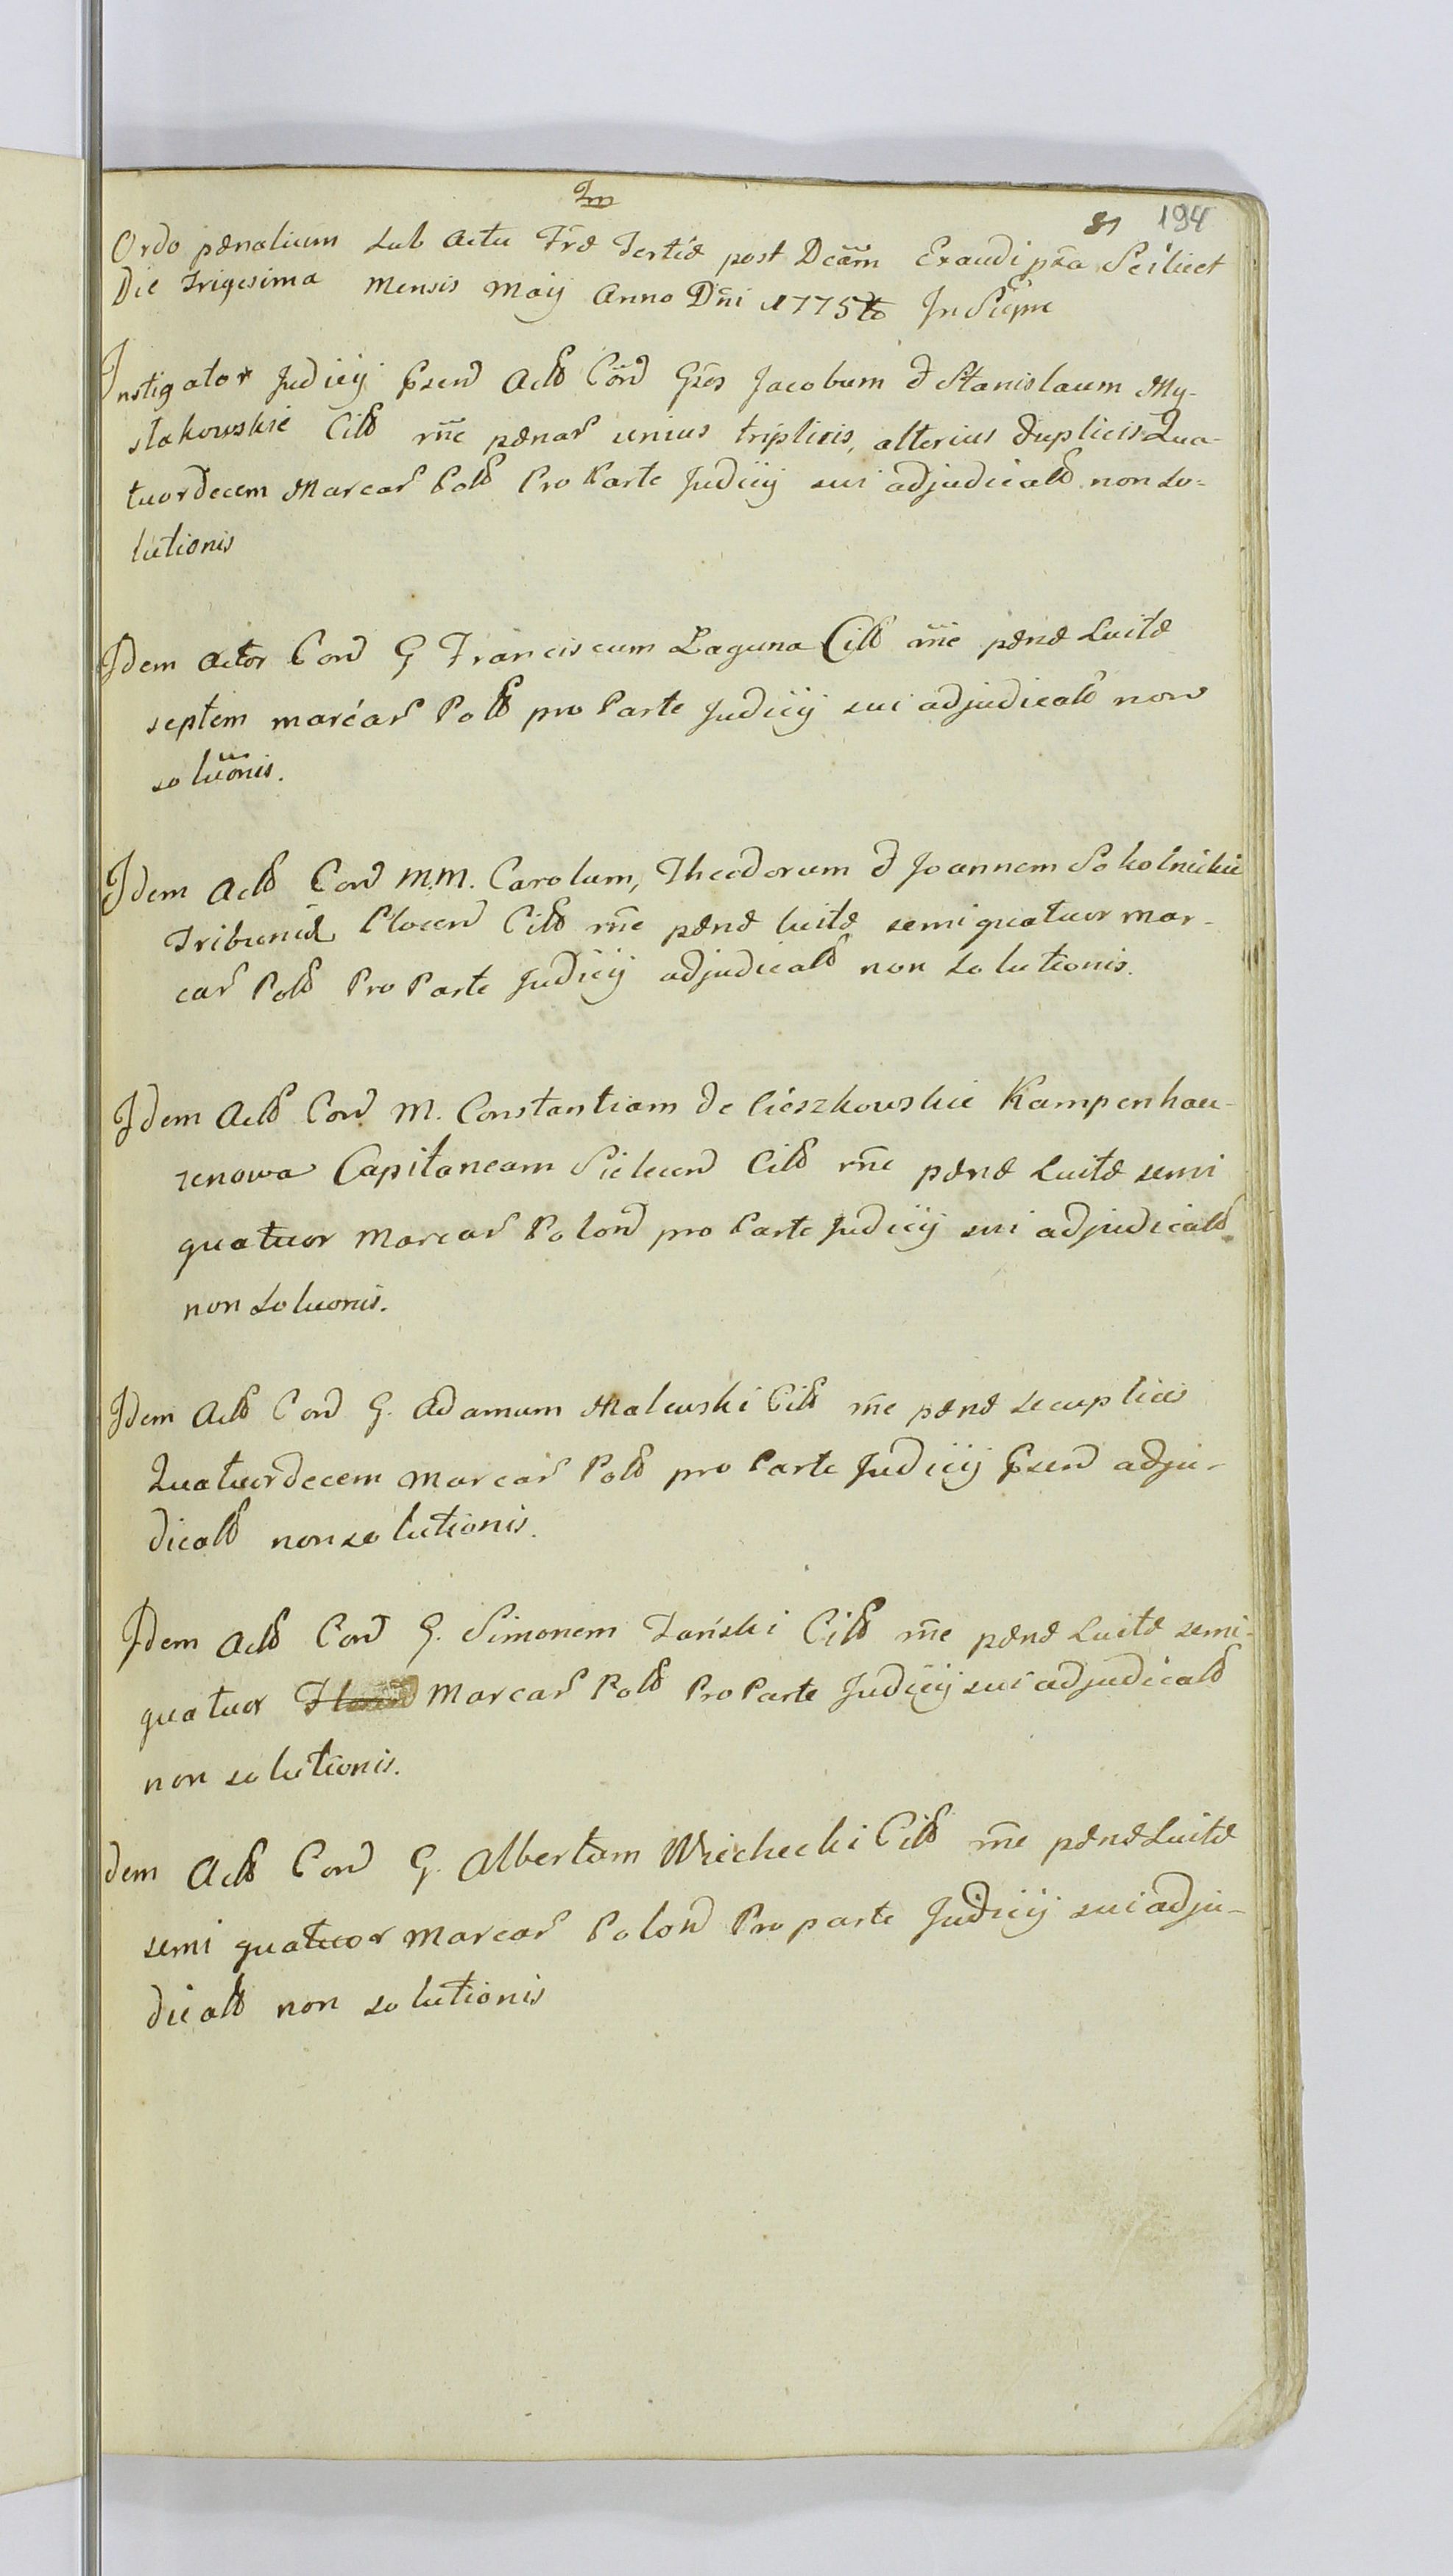 Im
81 194
Ordo pænalium sub actu Fræ Tertiæ post Dcam Exaudi pxa Scilicet
Die Trigesima Mensis Maij Anno Dni 1775to In Sierpc
Instigator Judicij Psend Actb Cond Gsos Jacobum & Stanislaum My-
stakowskie Citb rne pænar unius triplicis, alterius duplicis Qua-
tuordecem Marcar Polb Pro Parte Judicij sui adjudicatb non so-
lutionis
Idem Actor Cond G Franciscum Laguna Citb rne pænæ Luitæ
septem marcar Polb pro Parte Judicij sui adjudicatb non
soluonis.
Idem Actb Cond M.M. Carolum, Theodorum & Joannem Sokolnickie
Tribunid Plocend Citb rne pænæ luitæ semiquatuor mar-
car Polb Pro Parte Judicij adjudicatb non solutionis.
Idem Actb Cond M. Constantiam de Cieszkowskie Kampenhau-
zenowa Capitaneam Sielecend Citb rne pænæ Luitæ semi
quatuor Marcar Polond pro Parte Judicij sui adjudicatb
non soluonis.
Idem Actb Cond G. Adamum Malewski Citb rne pænæ secuplicis
Quatuordecem Marcar Polb pro Parte Judicij Psend adju-
dicatb non solutionis.
Idem Actb Cond G. Simonem Tański Citb rne pænæ Luitæ semi-
quatuor Marcar Polb Pro Parte Judicij sui adjudicatb
non solutionis.
dem Actb Cond G. Albertum Wichecki Citb rne pænæ Luitæ
semi quatuor Marcar Polond Pro parte Judicij sui adju-
dicatb non solutionis